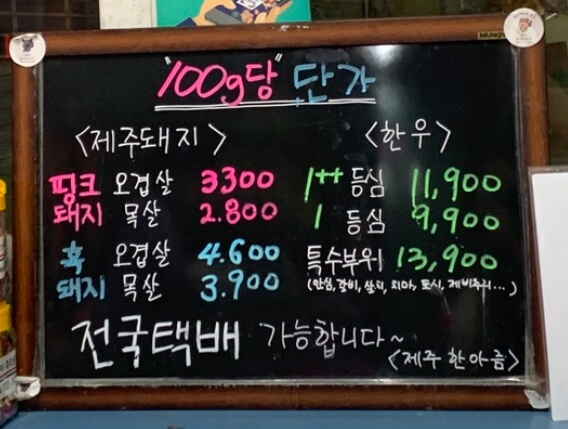 "100g당" 단가
<제주돼지>
핑크 오겹살 3300
돼지 목살 2.800
흑 오겹살 4.600
돼지 목살 3.900
<한우>
1++ 등심 11,900
1 등심 9,900
특수부위 13,900
(안심, 갈비, 살치, 치마, 토시, 제비추리...)
전국택배 가능합니다~
<제주 한아름>
MUNG